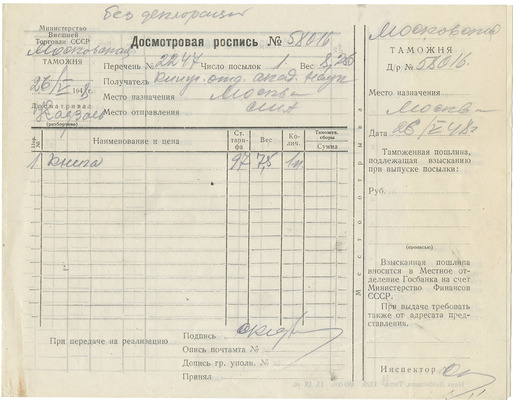 без декларации
Министерство
Внешней
Торговли СССР
Московская
ТАМОЖНЯ
26/V 1948 г.
Досматривал
(разборчиво)
Досмотровая роспись № 58016
Перечень № 2247 Число посылок 1 Вес
Получатель отд. акад. наук
Место назначения Москва
Место отправления США
Пор. № Наименование и цена Ст. тарифа Вес Колич. Таможен. сборы
Сумма
1 Книга 97 7,5 1 п
При передаче на реализацию
Подпись
Опись почтамта №
Допись гр. уполн. №
Принял
Место отрыва
Московская
ТАМОЖНЯ
Д/р № 58016
Место назначения
Москва
Дата 26/V 48 г
Таможенная пошлина,
подлежащая взысканию
при выпуске посылки:
Руб.
(прописью)
Взысканная пошлина
вносится в Местное от-
деление Госбанка на счет
Министерства Финансов
СССР.
При выдаче требовать
также от адресата пред-
ставления.
Инспектор